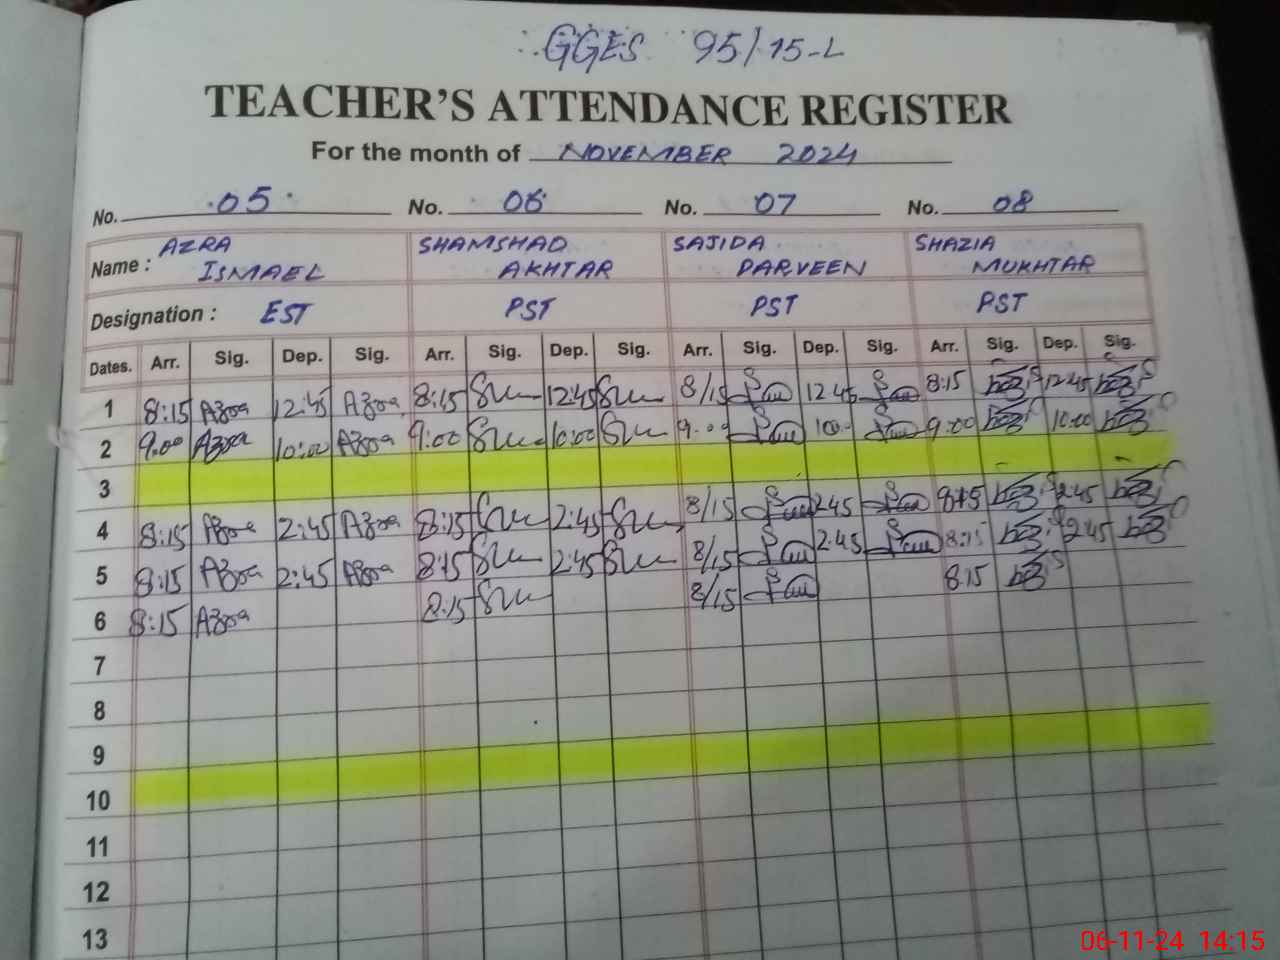 GGES 95/15-L
TEACHER'S ATTENDANCE REGISTER
For the month of NOVEMBER 2024
No. 05 No. 06 No. 07 No. 08
Name : AZRA ISMAEL SHAMSHAD AKHTAR SAJIDA PARVEEN SHAZIA MUKHTAR
Designation : EST PST PST PST
Dates. Arr. Sig. Dep. Sig. Arr. Sig. Dep. Sig. Arr. Sig. Dep. Sig. Arr. Sig. Dep. Sig.
1 8:15 Azra 12:45 Azra 8:15 12:45 8/15 12 45 8:15 12:45
2 9:00 Azra 10:00 Azra 9:00 10:00 9:00 10:00 9:00 10:00
3
4 8:15 Azra 2:45 Azra 8:15 2:45 8/15 2:45 8:15 2:45
5 8:15 Azra 2:45 Azra 8:15 2:45 8/15 2:45 8:15 2:45
6 8:15 Azra 8:15 8/15 8:15
7
8
9
10
11
12
13
06-11-24 14:15